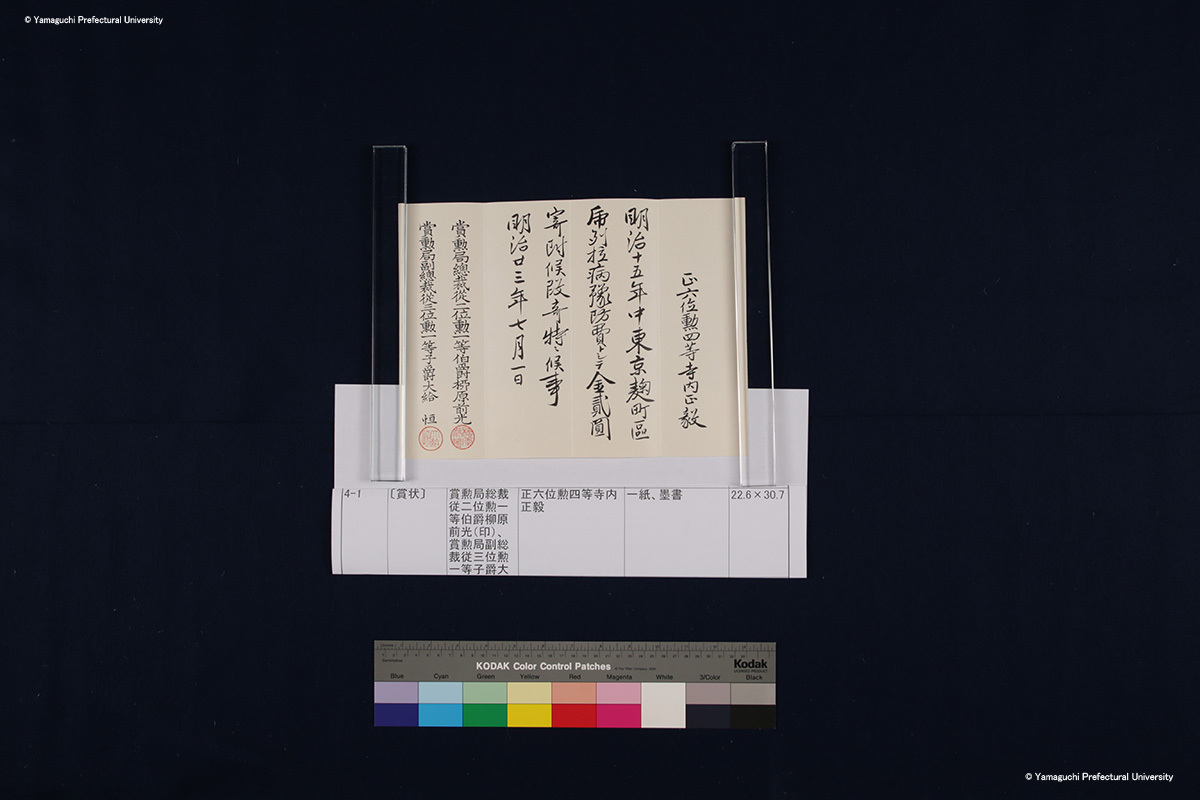 © Yamaguchi Prefectural University
正六位勲四等寺内正毅
明治十五年中東京麹町區
虎列拉病豫防費トシテ金貳圓
寄附候段奇特ニ候事
明治廿三年七月一日
賞勲局總裁從二位勲一等伯爵柳原前光
賞勲局副總裁從三位勲一等子爵大給 恒
4-1
〔賞状〕
賞勲局総裁
従二位勲一
等伯爵柳原
前光(印)、
賞勲局副総
裁従三位勲
一等子爵大
正六位勲四等寺内
正毅
一紙、墨書
22.6×30.7
KODAK Color Control Patches
Kodak
Blue
Cyan
Green
Yellow
Red
Magenta
White
3/Color
Black
© Yamaguchi Prefectural University